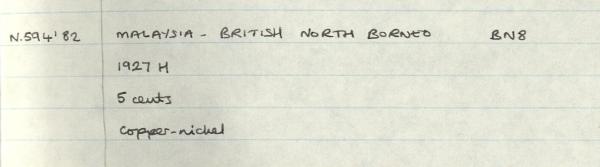 N.594'82 MALAYSIA - BRITISH NORTH BORNEO BN8
1927 H
5 cents
copper-nickel